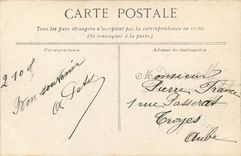 CARTE POSTALE
Tous les pays étrangers n'acceptent pas la correspondance au recto.
(Se renseigner à la poste.)
Correspondance
Adresse du destinataire
Bon souvenir
Monsieur
Pierre
1 rue Passerat
Troyes
Aube